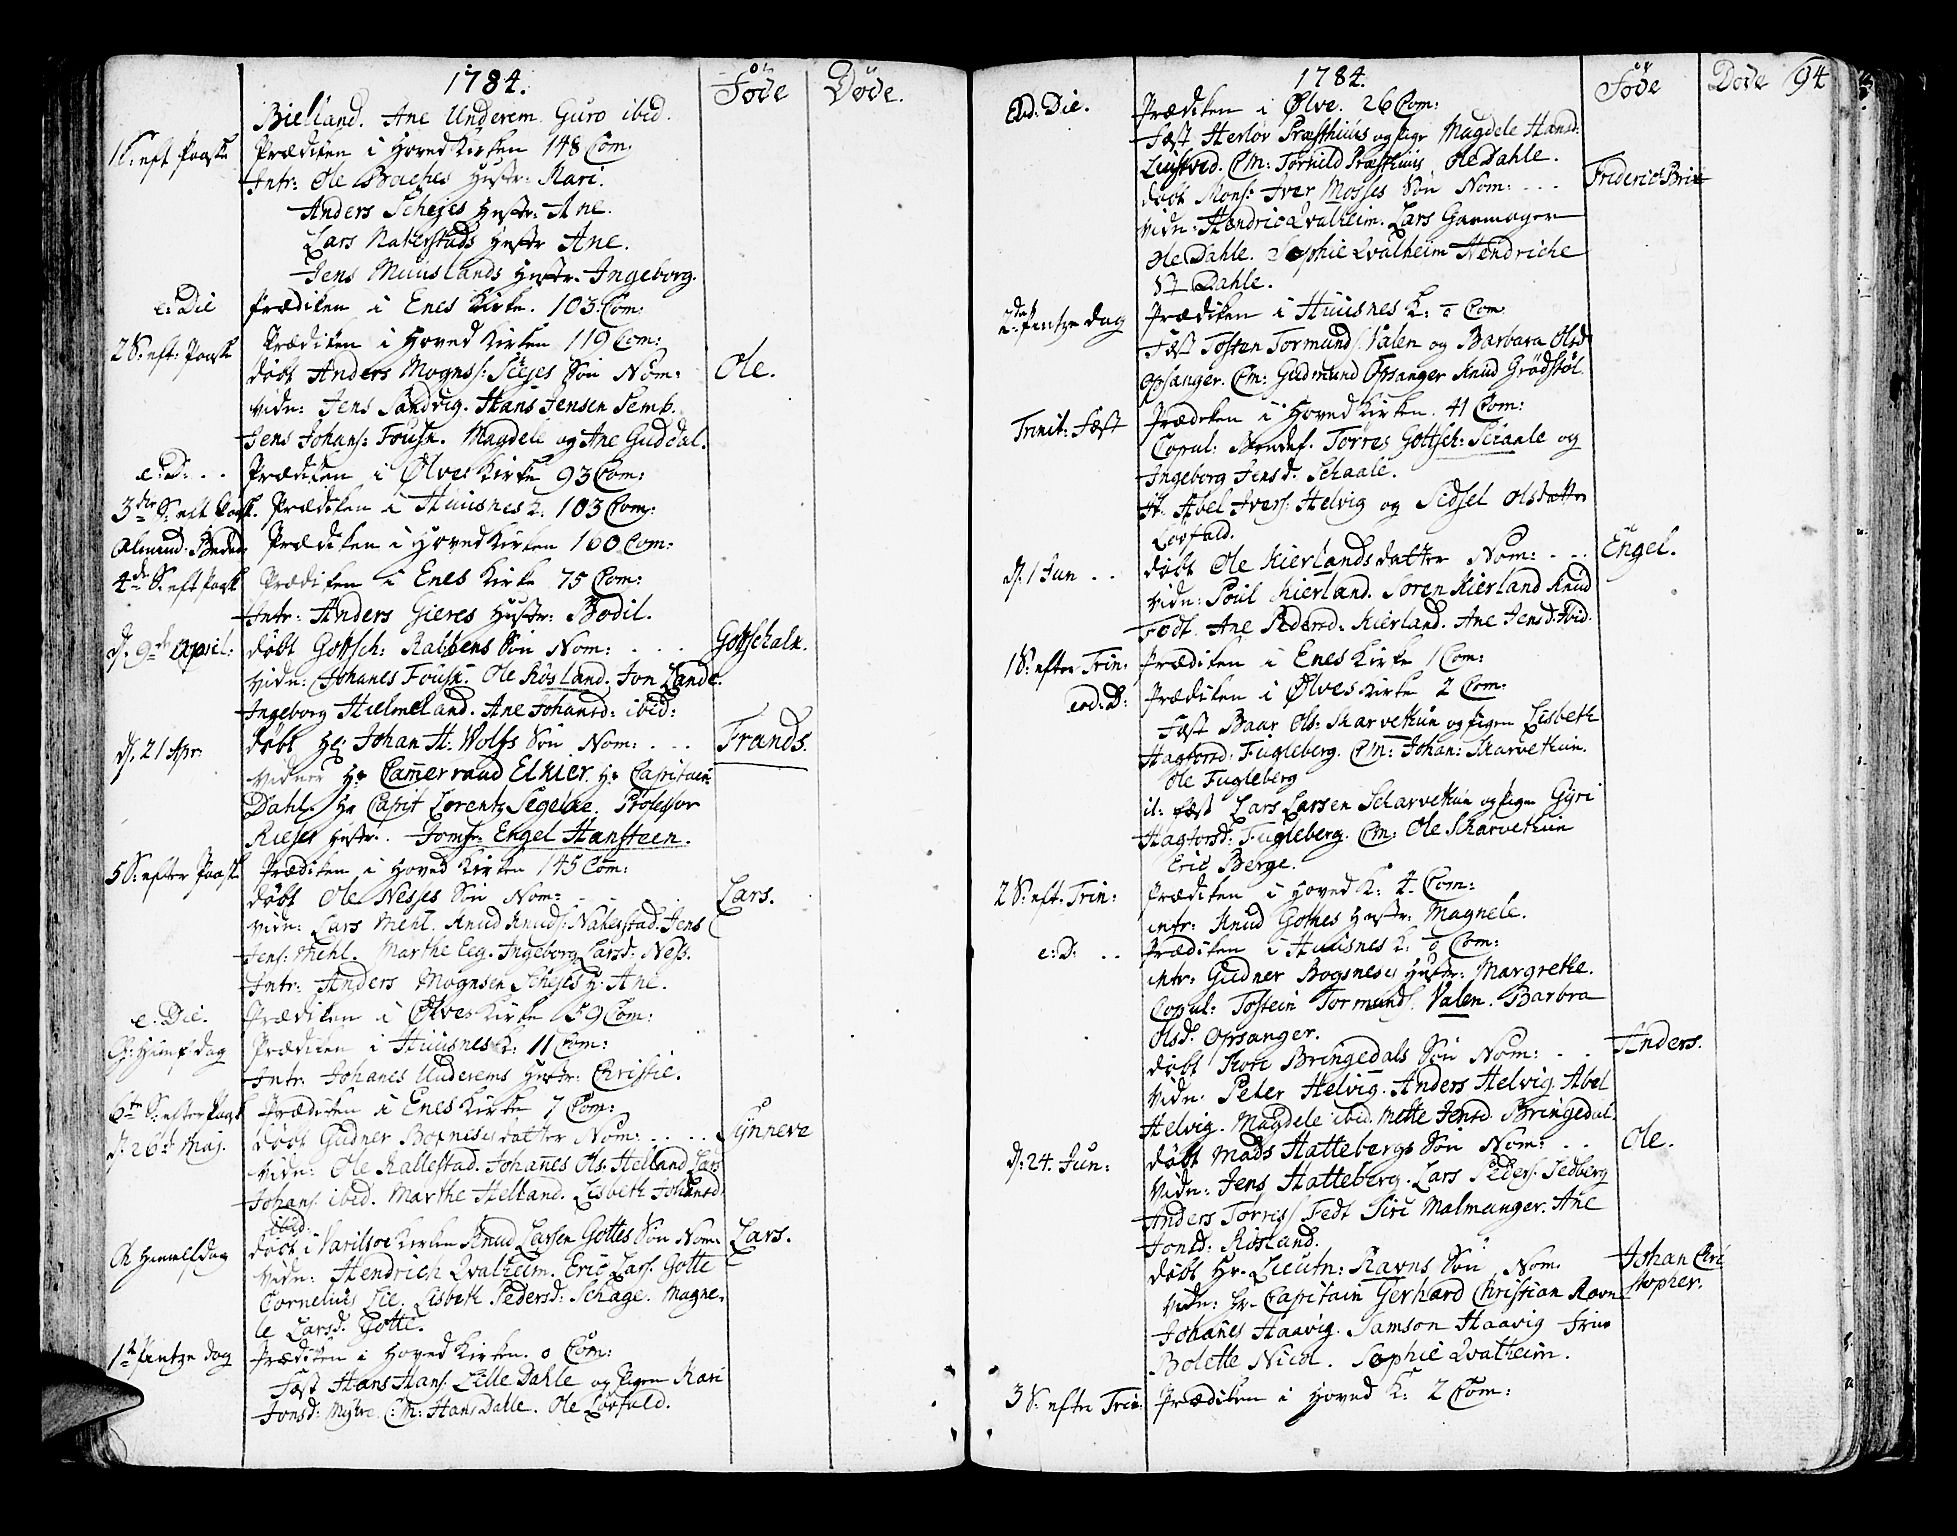 1784. Føde Døde.
Bielland. Ane Underem. Guro ibid.
1 S: eft Paaske Prædiken i Hoved Kirken 148 Com:
Intr: Ole Baches Hustr: Kari.
Anders Schejes Hustr: Ane.
Lars Nakerstads Hustr Ane.
Jens Muuslands Hustr. Ingeborg.
e: Die Prædiken i Enes Kirke. 103. Com:
2 S: eft: Paaske Prædiken i Hoved Kirken 119 Com:
døbt Anders Mognss: Scejes Søn Nom: Ole.
vidn: Jens Sandvig. Hans Jensen Semb.
Jens Johans: Fousn. Magdele og Ane Guddal.
e: D: . . Prædiken i Ølves Kirke 93 Com:
3die S: eft Paask. Prædiken i Huusnes K. 103 Com:
Almind: Bededag Prædiken i Hoved Kirken 100 Com:
4de S: eft Paask Prædiken i Enes Kirke 75 Com:
Intr: Anders Gieres Hustr: Bodil.
d. 9de April: døbt Gottsch: Rabbens Søn Nom: . . . Gottschalk.
vidn: Johanes Fousn. Ole Røsland. Jon Lande.
Ingeborg Hielmeland. Ane Johansd: ibid:
d. 21 Apr. døbt Hr: Johan H: Wolfs Søn Nom: . . . Frands.
vidner Hr Camerraad Elkier. Hr Capitain
Dahl. Hr Capit Lorentz Segelke. Professor
Hustr. . Jomfr: Engel Hansteen.
5 S: efter Paask Prædiken i Hoved Kirken 145 Com:
døbt Ole Nesses Søn Nom: . . . Lars.
vidn: Lars Mehl. Knud Knuds: Nakerstad. Jens
Jens: Mehl. Marthe Eeg. Ingeborg Larsd: Ness.
Intr: Anders Mognsen Schejes H: Ane.
e. Die. Prædiken i Ølves Kirke 59 Com:
Ch: Himf dag Prædiken i Huusnes K: 11 Com:
Intr: Johanes Underems Hustr: Christie.
6te S: efter Paask Prædiken i Enes Kirke 7 Com:
d. 26de Maj. døbt Gudner Bognes's datter Nom: . . . Synneva
vidn: Ole Rallestad. Johanes Ols: Helland Lars
Johans: ibid. Marthe Helland. Lisbeth Johansd
ibid:
Ch Himmelfdag døbt i Varilsøe Kirken Knud Larsen Gottes Søn Nom. Lars.
vidn: Hendrich Qvalheim. Eric Lars: Gotte
Cornelius Lie. Lisbeth Pedersd: Schage. Magne-
le Larsd. Gotte.
1te Pintze dag Prædiken i Hoved Kirken. 0 Com:
Fæst Hans Hans: Lille Dahle og Pigen Kari
Jonsd: Myhre. C: M: Hans Dahle. Ole Løvfald.
1784. Føde Døde 94
Eod. Die. Prædiken i Ølve. 26 Com:
Fæst Herlov Præsthuus og Pige Magdele Hansd.
Liustved. Cm: Torkild Præsthuus Ole Dahle.
døbt Mons: Iver Mosses Søn Nom: . . . Frideric Brix
vidn: Hendric Qvalheim. Lars Garmager
Ole Dahle. Sophie Qvalheim Hendriche
St Dahle.
2den Pintze dag Prædiken i Huusnes K: 0 Com
Fæst Tosten Tormunds: Valen og Barbara Olsd
Opsanger. Cm: Gudmund Opsanger Knud Grødstøl.
Trinit: Fæst Prædiken i Hoved Kirken. 41 Com:
Copul: Torres Gottsch: Schaale og
Ingeborg Jensd. Schaale.
It. Abel Ivers: Helvig og Sidsel Olsdatter
Løvfald.
d. 1 Jun . . døbt Ole Kierlands datter Nom: . . . Engel.
vidn: Poul Kierland. Søren Kierland Knud
Fodt. Ane Pedersd. Kierland. Ane Jensd. Ibid.
1 S: efter Trin: Prædiken i Enes Kirke 1 Com:
eod: D: Prædiken i Ølves Kirke 2 Com:
Fæst Baar Ols: Skarvetuun og Pigen Lisbeth
Hagtorsd. Fugleberg. Cm: Johan: Skarvetuun.
Ole Fugleberg
it: Fæst Lars Larsen Scharvetuun og Pigen Gyri
Hagtorsd: Fugleberg. Cm: Ole Scharvetuun
Eric Berge.
2 S: eft. Trin: Prædiken i Hoved K: 4. Com:
intr: Knud Gothes Hustr: Magnele.
e: D: . . Prædiken i Huusnes K: 0 Com:
intr: Gudner Bogsnes's Hustr: Margrethe.
Copul: Tostein Tormunds: Valen. Barbra
Olsd. Opsanger.
døbt Bringedals Søn Nom: . . Anders.
vidn: Peter Helvig. Anders Helvig. Abel
Helvig. Magdele ibid. Mette Jensd. Bringedal.
d: 24. Jun: døbt Mads Hattebergs Søn Nom: . . Ole.
vidn: Jens Hatteberg. Lars Peders: Sedberg
Anders Torres: Fedt Siri Malmanger. Ane
Jonsd: Røsland.
døbt Hr. Lieutn: Ravns Søn Nom. Johan Chri
vidn: Hr. Capitain Gerhard Christian Ravn stopher.
Johanes Haavig. Samson Haavig Frue
Bolette Nicol. Sophie Qvalheim.
3 S: efter Trin: Prædiken i Hoved K: 2 Com: